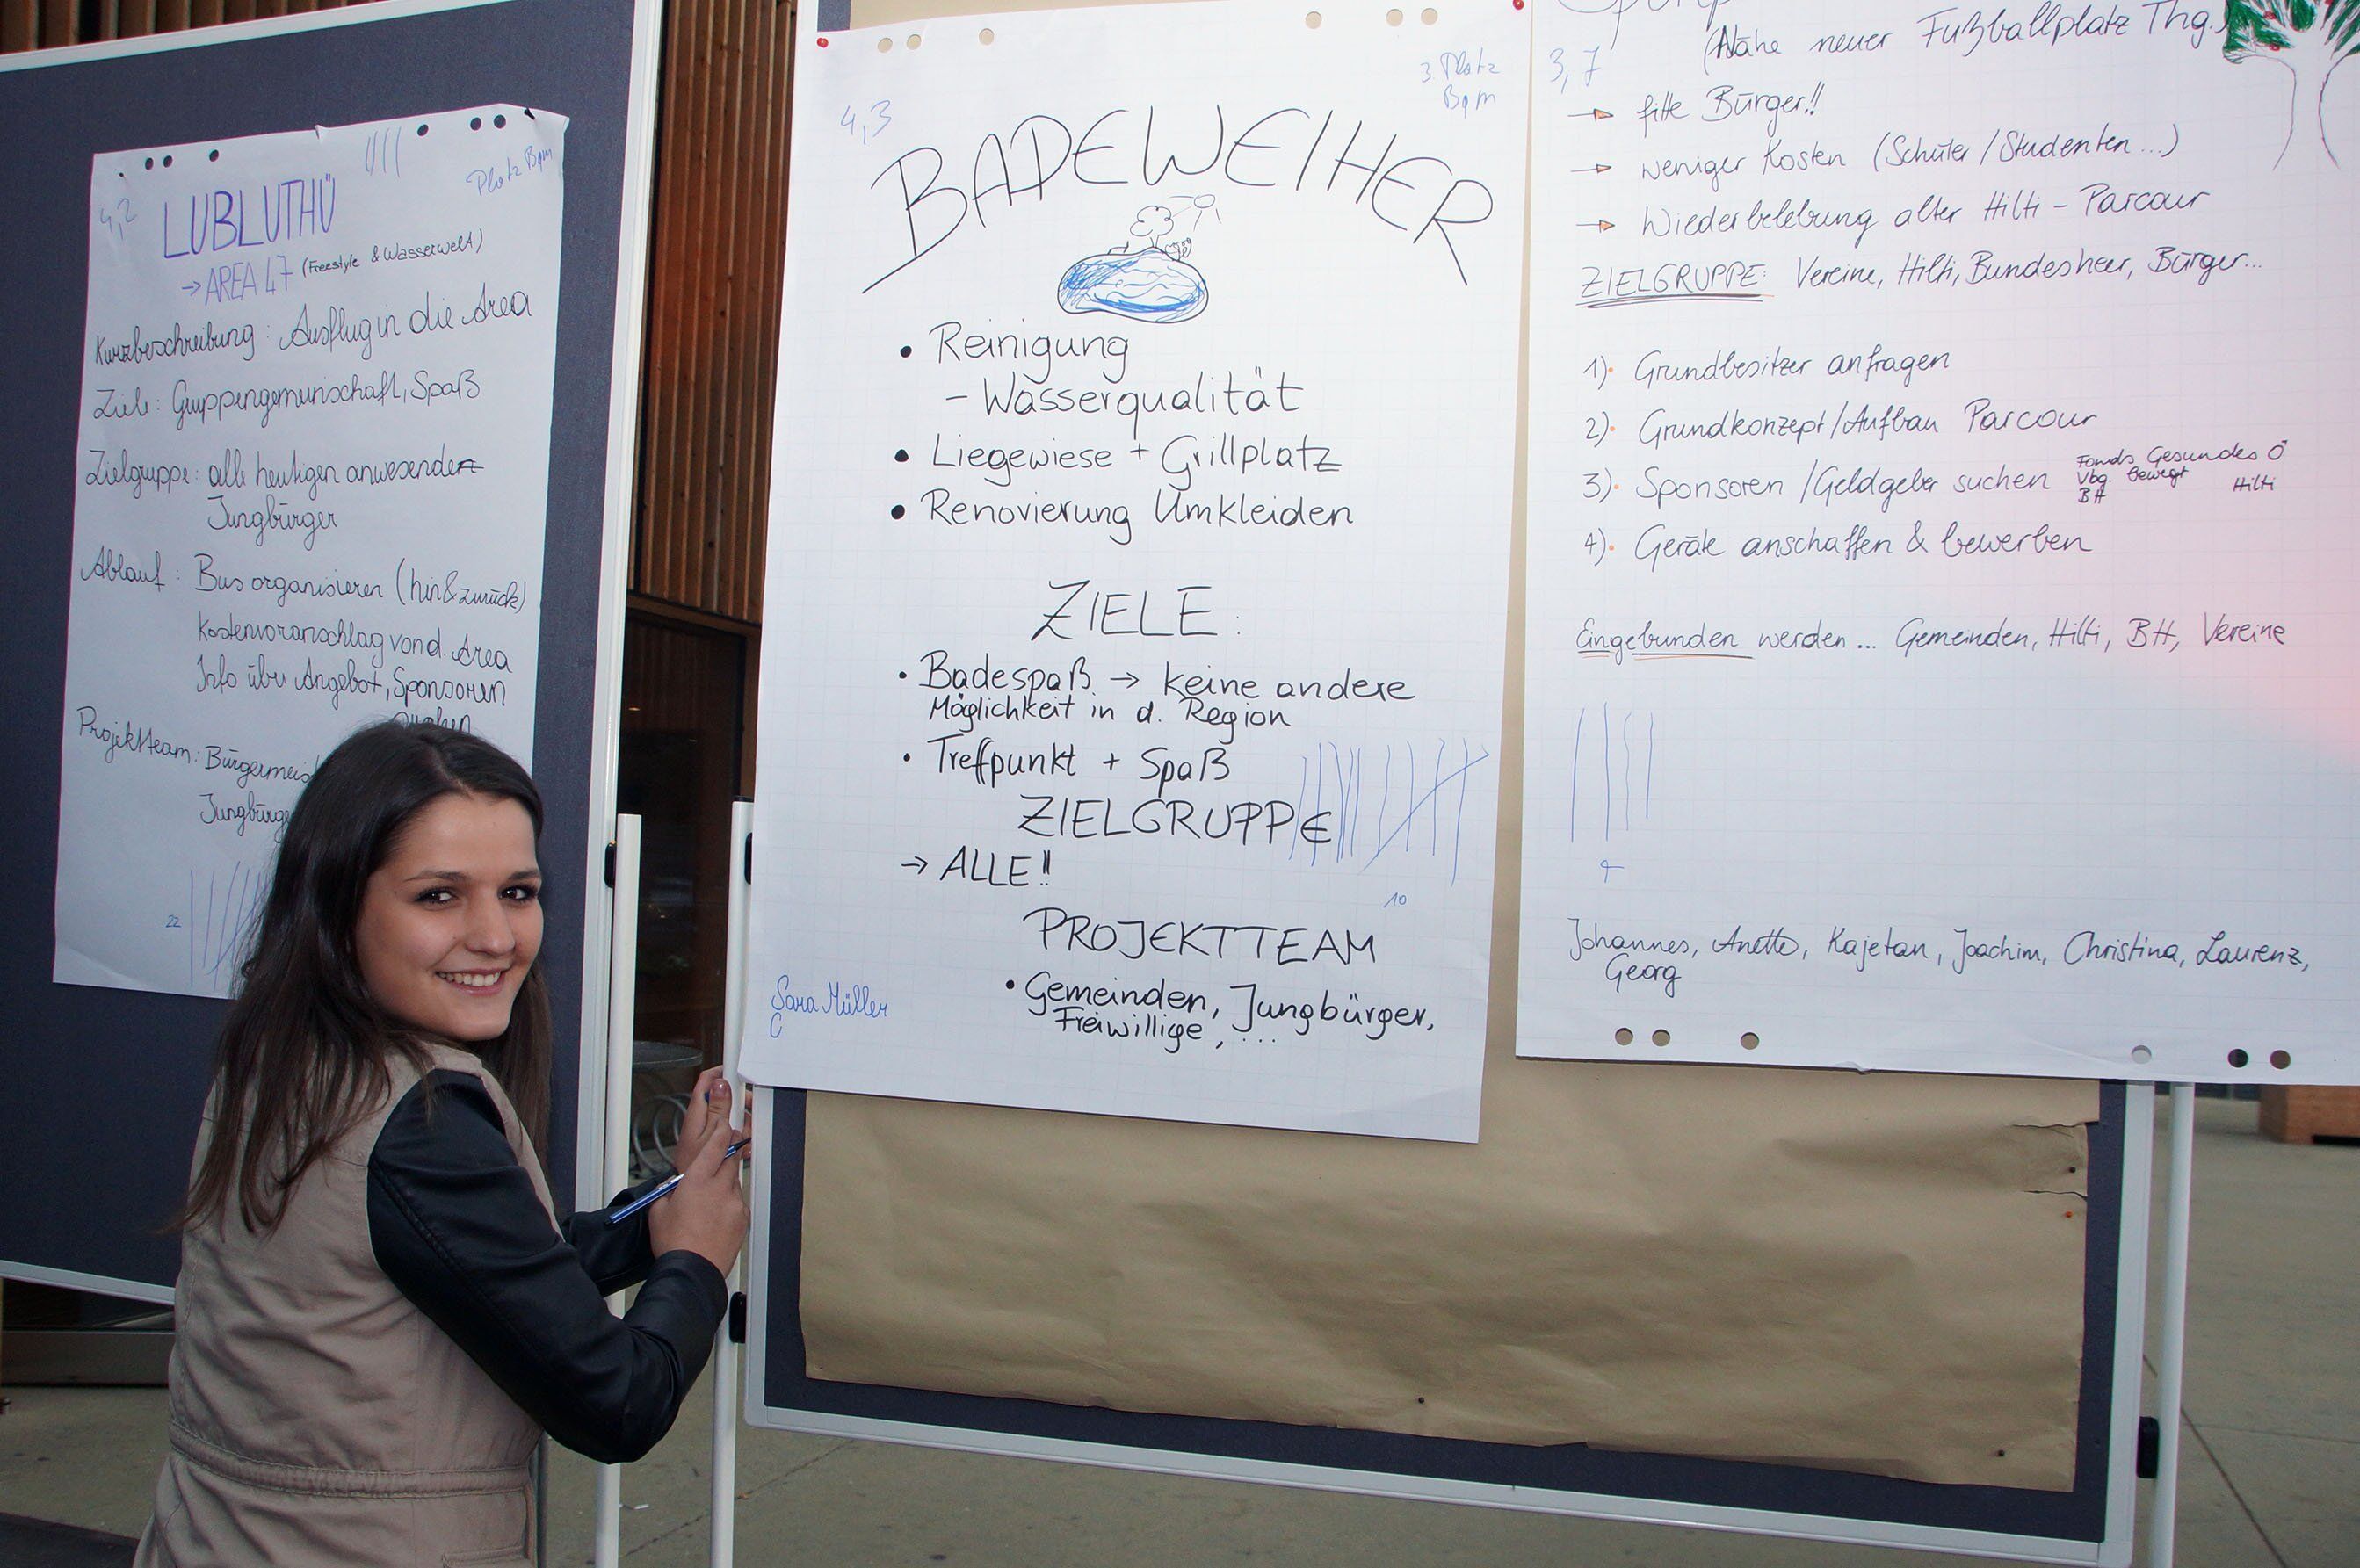 4,2
Platz Bgm
LUBLUTHÜ
→ AREA 47 (Freestyle & Wasserwelt)
Kurzbeschreibung: Ausflug in die Area
Ziele: Gruppengemeinschaft, Spaß
Zielgruppe: alle heutigen anwesenden
Jungbürger
Ablauf: Bus organisieren (hin & zurück)
Kostenvoranschlag von d. Area
Info über Angebot, Sponsoren
Projektteam: Bürgermeis
Jungbürge
22
4,3
3 Platz
Bgm
BADEWEIHER
• Reinigung
- Wasserqualität
• Liegewiese + Grillplatz
• Renovierung Umkleiden
ZIELE:
• Badespaß → keine andere
Möglichkeit in d. Region
• Treffpunkt + Spaß
ZIELGRUPPE
→ ALLE!!
10
PROJEKTTEAM
• Gemeinden, Jungbürger,
Freiwillige, ...
Sara Müller
(Nähe neuer Fußballplatz Thg.)
3,7
→ fitte Bürger!!
→ weniger Kosten (Schüler/Studenten...)
→ Wiederbelebung alter Hilti-Parcour
ZIELGRUPPE: Vereine, Hilti, Bundesheer, Bürger...
1) Grundbesitzer anfragen
2) Grundkonzept/Aufbau Parcour
3) Sponsoren/Geldgeber suchen Fonds Gesundes Ö
Vbg. bewegt
BH Hilti
4) Geräte anschaffen & bewerben
Eingebunden werden... Gemeinden, Hilti, BH, Vereine
Johannes, Anette, Kajetan, Joachim, Christina, Laurenz,
Georg